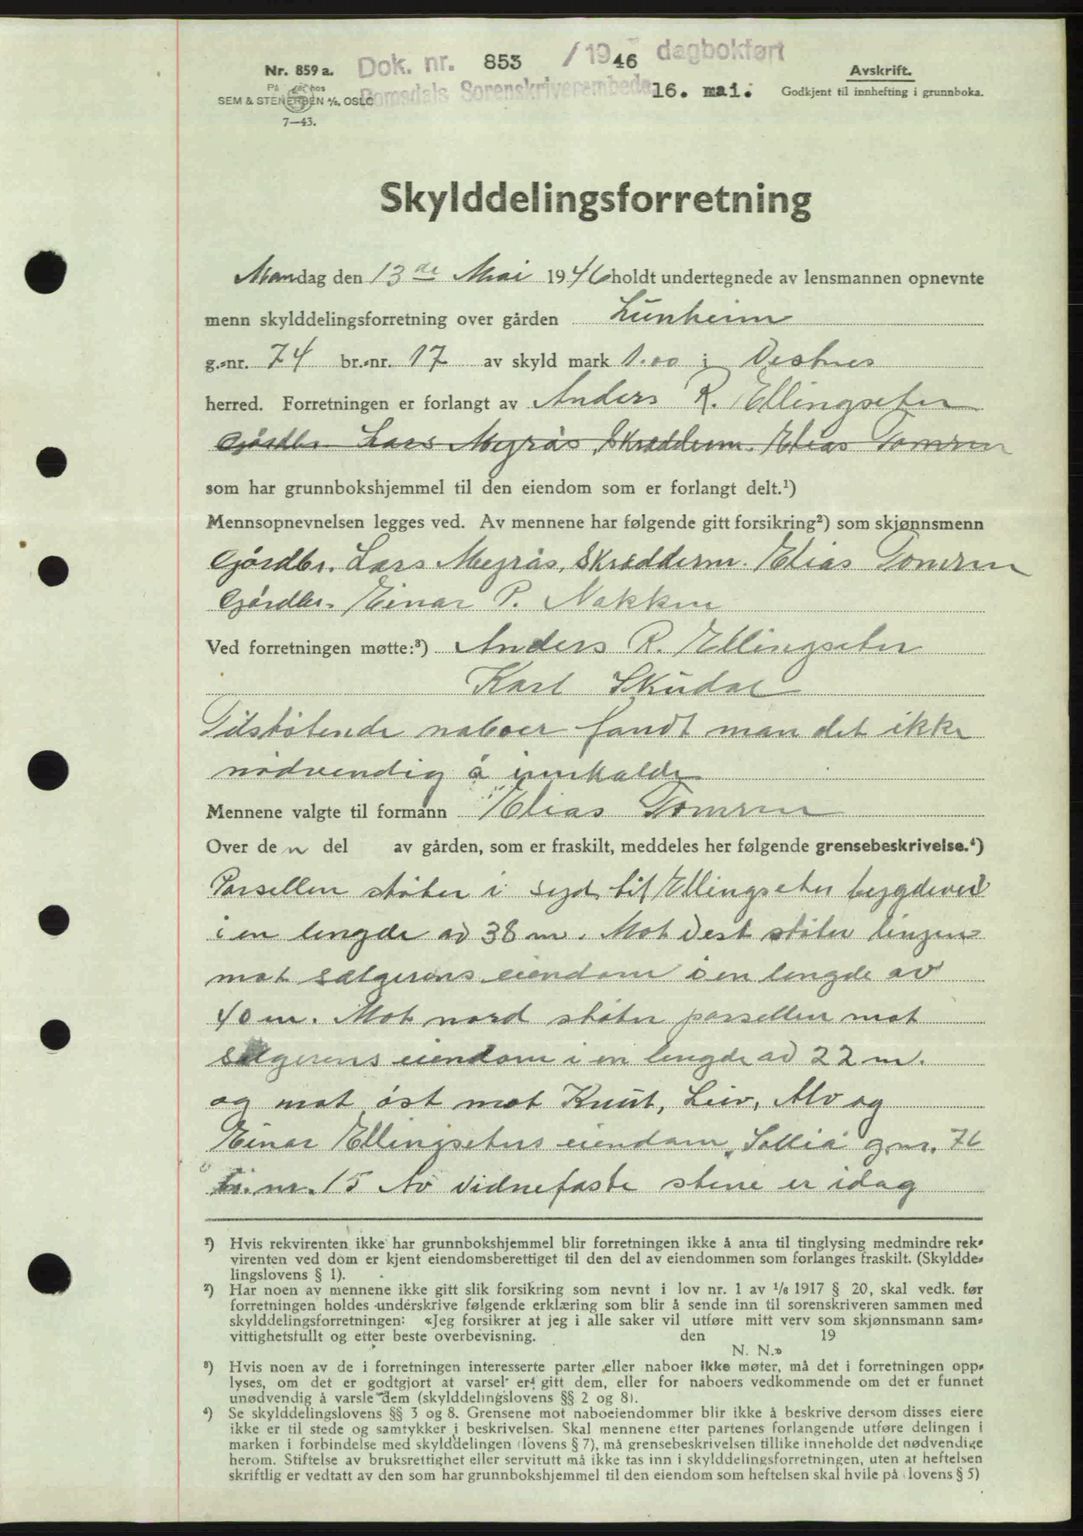 Nr. 859 a.
På lager hos
SEM & STENERSEN A/S, OSLO
7—43.
Dok. nr. 853 /1946 dagbokført
Romsdals Sorenskriverembede 16. mai.
Avskrift.
Godkjent til innhefting i grunnboka.
Skylddelingsforretning
Mandag den 13de Mai 1946 holdt undertegnede av lensmannen opnevnte
menn skylddelingsforretning over gården Lunheim
g.-nr. 74 br.-nr. 17 av skyld mark 1.00 i Vestnes
herred. Forretningen er forlangt av Anders R. Ellingseter
Gårdbr. Lars Myrås, Skredderm. Elias Tomren
som har grunnbokshjemmel til den eiendom som er forlangt delt.¹)
Mennsopnevnelsen legges ved. Av mennene har følgende gitt forsikring²) som skjønnsmenn
Gårdbr. Lars Myrås, Skredderm. Elias Tomren
Gårdbr. Einar P. Nakken
Ved forretningen møtte:³) Anders R. Ellingseter
Karl Skudal
Tilstøtende naboer fandt man det ikke
nødvendig å innkalde
Mennene valgte til formann Elias Tomren
Over den del av gården, som er fraskilt, meddeles her følgende grensebeskrivelse.⁴)
Parsellen støter i syd til Ellingseter bygdevei
i en lengde av 38 m. Mot vest støter linjen
mot sælgerens eiendom i en lengde av
40 m. Mot nord støter parsellen mot
sælgerens eiendom i en lengde av 22 m.
og mot øst mot Knut, Leiv, Alv og
Einar Ellingseters eiendom „Sollia" g.nr. 74
br. nr. 15 Av vidnefaste stene er idag
¹) Hvis rekvirenten ikke har grunnbokshjemmel blir forretningen ikke å anta til tinglysing medmindre rek-
virenten ved dom er kjent eiendomsberettiget til den del av eiendommen som forlanges fraskilt. (Skyldde-
lingslovens § 1).
²) Har noen av mennene ikke gitt slik forsikring som nevnt i lov nr. 1 av ¹/₆ 1917 § 20, skal vedk. før
forretningen holdes underskrive følgende erklæring som blir å sende inn til sorenskriveren sammen med
skylddelingsforretningen: «Jeg forsikrer at jeg i alle saker vil utføre mitt verv som skjønnsmann sam-
vittighetsfullt og etter beste overbevisning. den 19
N. N.»
³) Hvis noen av de i forretningen interesserte parter eller naboer ikke møter, må det i forretningen opp-
lyses, om det er godtgjort at varsel er gitt dem, eller for naboers vedkommende om det er funnet
unødvendig å varsle dem (skylddelingslovens §§ 2 og 8).
⁴) Se skylddelingslovens §§ 3 og 8. Grensene mot naboeiendommer blir ikke å beskrive dersom disses eiere
ikke er til stede og samtykker i beskrivelsen. Skal mennene etter partenes forlangende utføre delingen i
marken i forbindelse med skylddelingen (lovens § 7), må grensebeskrivelsen tillike inneholde det nødvendige
herom. Stiftelse av bruksrettighet eller servitutt må ikke tas inn i skylddelingsforretningen, uten at heftelsen
skriftlig er vedtatt av den som har grunnbokshjemmel til den eiendom som heftelsen skal hvile på (lovens § 5)